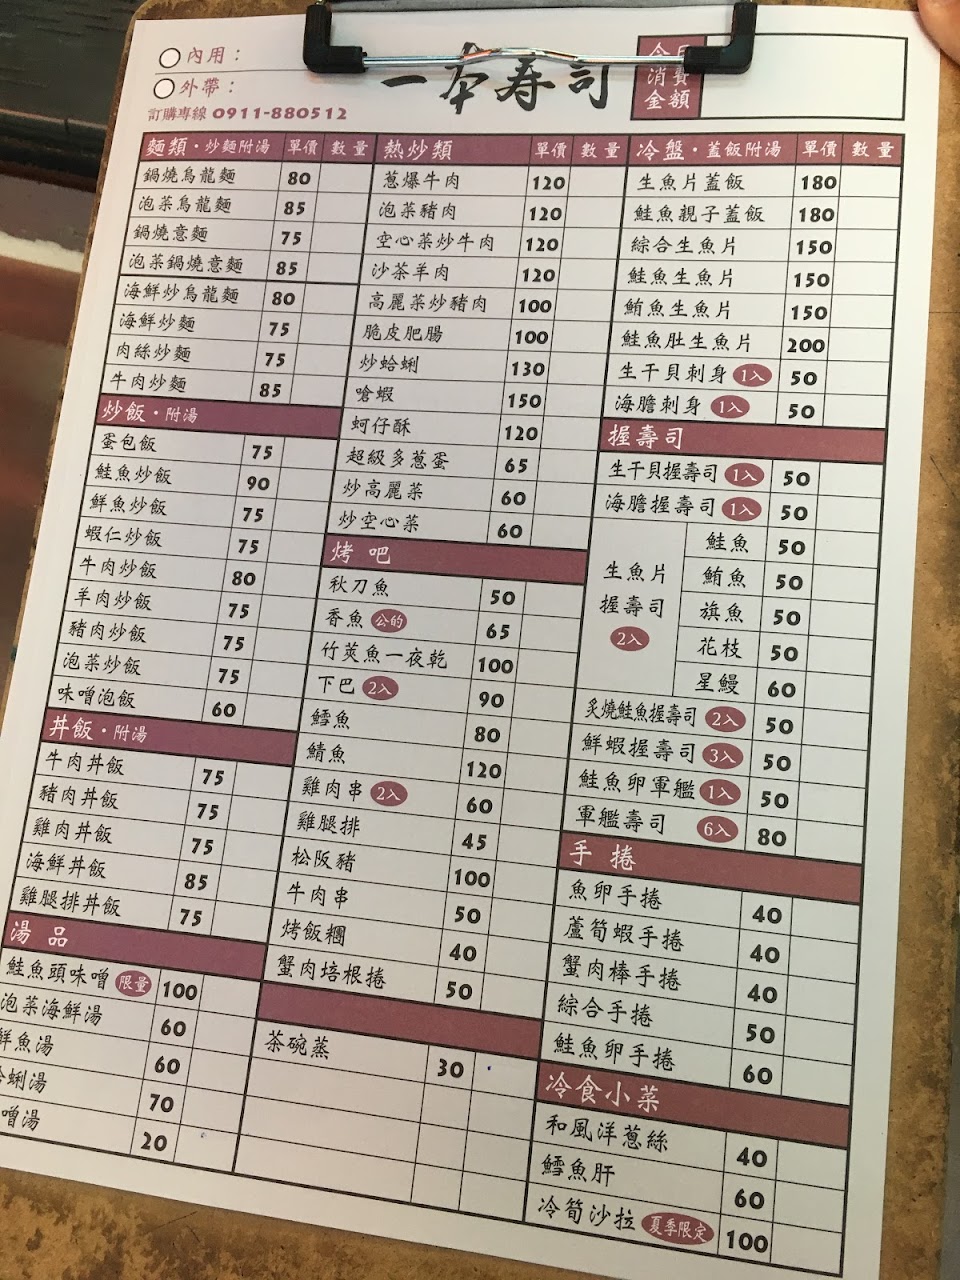 內用：
外帶：
訂購專線 0911-880512
一本寿司
今日
消費
金額
麵類・炒麵附湯 單價 數量
鍋燒烏龍麵 80
泡菜烏龍麵 85
鍋燒意麵 75
泡菜鍋燒意麵 85
海鮮炒烏龍麵 80
海鮮炒麵 75
肉絲炒麵 75
牛肉炒麵 85
炒飯・附湯
蛋包飯 75
鮭魚炒飯 90
鮮魚炒飯 75
蝦仁炒飯 75
牛肉炒飯 80
羊肉炒飯 75
豬肉炒飯 75
泡菜炒飯 75
味噌泡飯 60
丼飯・附湯
牛肉丼飯 75
豬肉丼飯 75
雞肉丼飯 75
海鮮丼飯 85
雞腿排丼飯 75
湯品
鮭魚頭味噌 限量 100
泡菜海鮮湯 60
鮮魚湯 60
蜊湯 70
噌湯 20
熱炒類 單價 數量
蔥爆牛肉 120
泡菜豬肉 120
空心菜炒牛肉 120
沙茶羊肉 120
高麗菜炒豬肉 100
脆皮肥腸 100
炒蛤蜊 130
嗆蝦 150
蚵仔酥 120
超級多蔥蛋 65
炒高麗菜 60
炒空心菜 60
烤吧
秋刀魚 50
香魚 公的 65
竹莢魚一夜乾 100
下巴 2入 90
鱈魚 80
鯖魚 120
雞肉串 2入 60
雞腿排 45
松阪豬 100
牛肉串 50
烤飯糰 40
蟹肉培根捲 50
茶碗蒸 30
冷盤・蓋飯附湯 單價 數量
生魚片蓋飯 180
鮭魚親子蓋飯 180
綜合生魚片 150
鮭魚生魚片 150
鮪魚生魚片 150
鮭魚肚生魚片 200
生干貝刺身 1入 50
海膽刺身 1入 50
握壽司
生干貝握壽司 1入 50
海膽握壽司 1入 50
生魚片
握壽司
2入
鮭魚 50
鮪魚 50
旗魚 50
花枝 50
星鰻 60
炙燒鮭魚握壽司 2入 50
鮮蝦握壽司 3入 50
鮭魚卵軍艦 1入 50
軍艦壽司 6入 80
手捲
魚卵手捲 40
蘆筍蝦手捲 40
蟹肉棒手捲 40
綜合手捲 50
鮭魚卵手捲 60
冷食小菜
和風洋蔥絲 40
鱈魚肝 60
冷筍沙拉 夏季限定 100